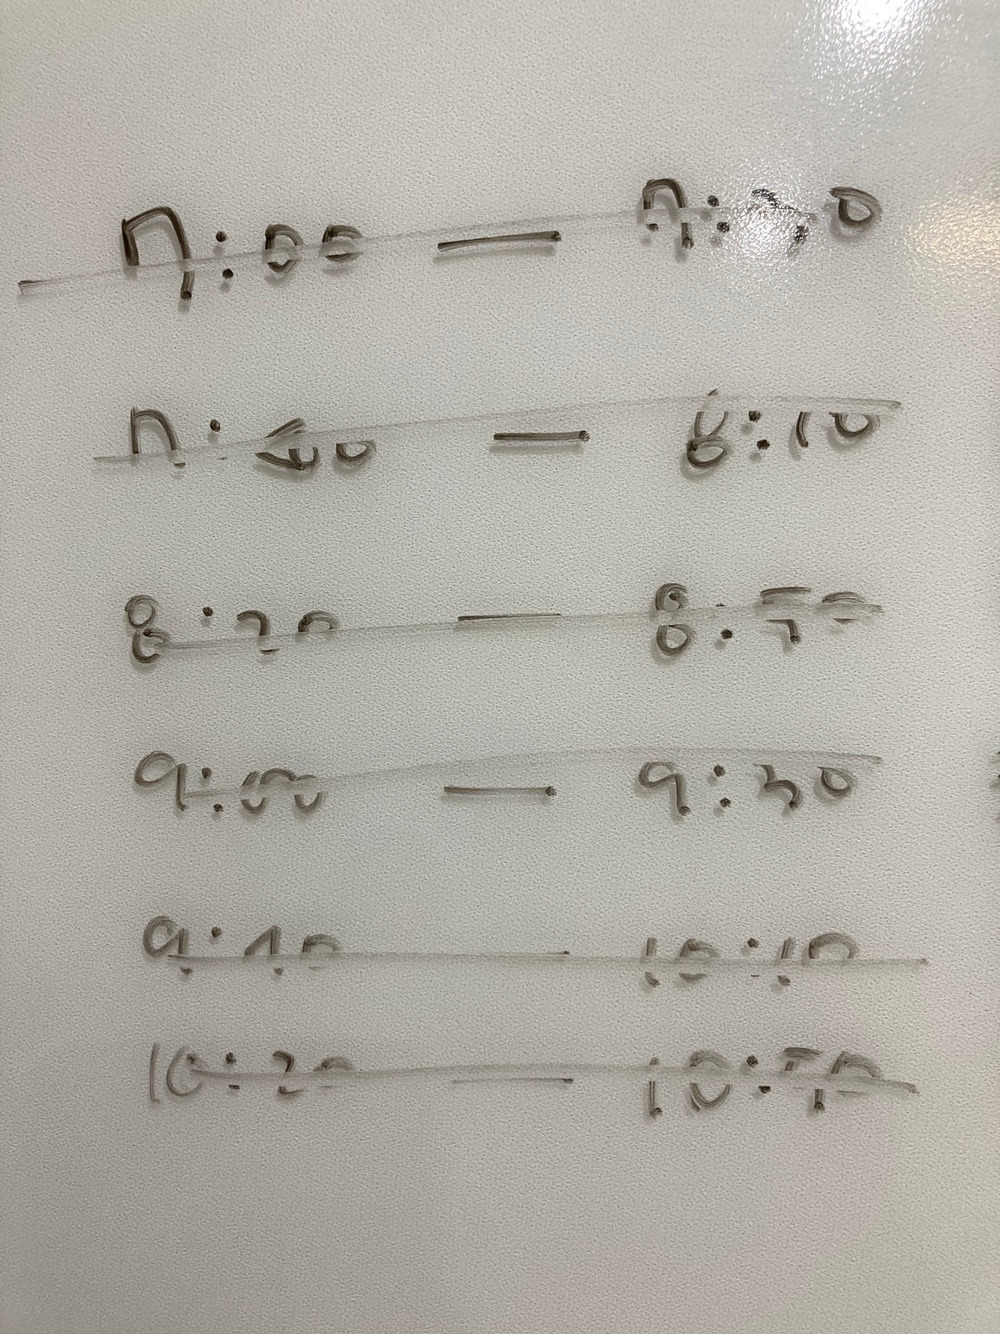 7:00 — 7:30
7:40 — 8:10
8:20 — 8:50
9:00 — 9:30
9:40 — 10:10
10:20 — 10:50